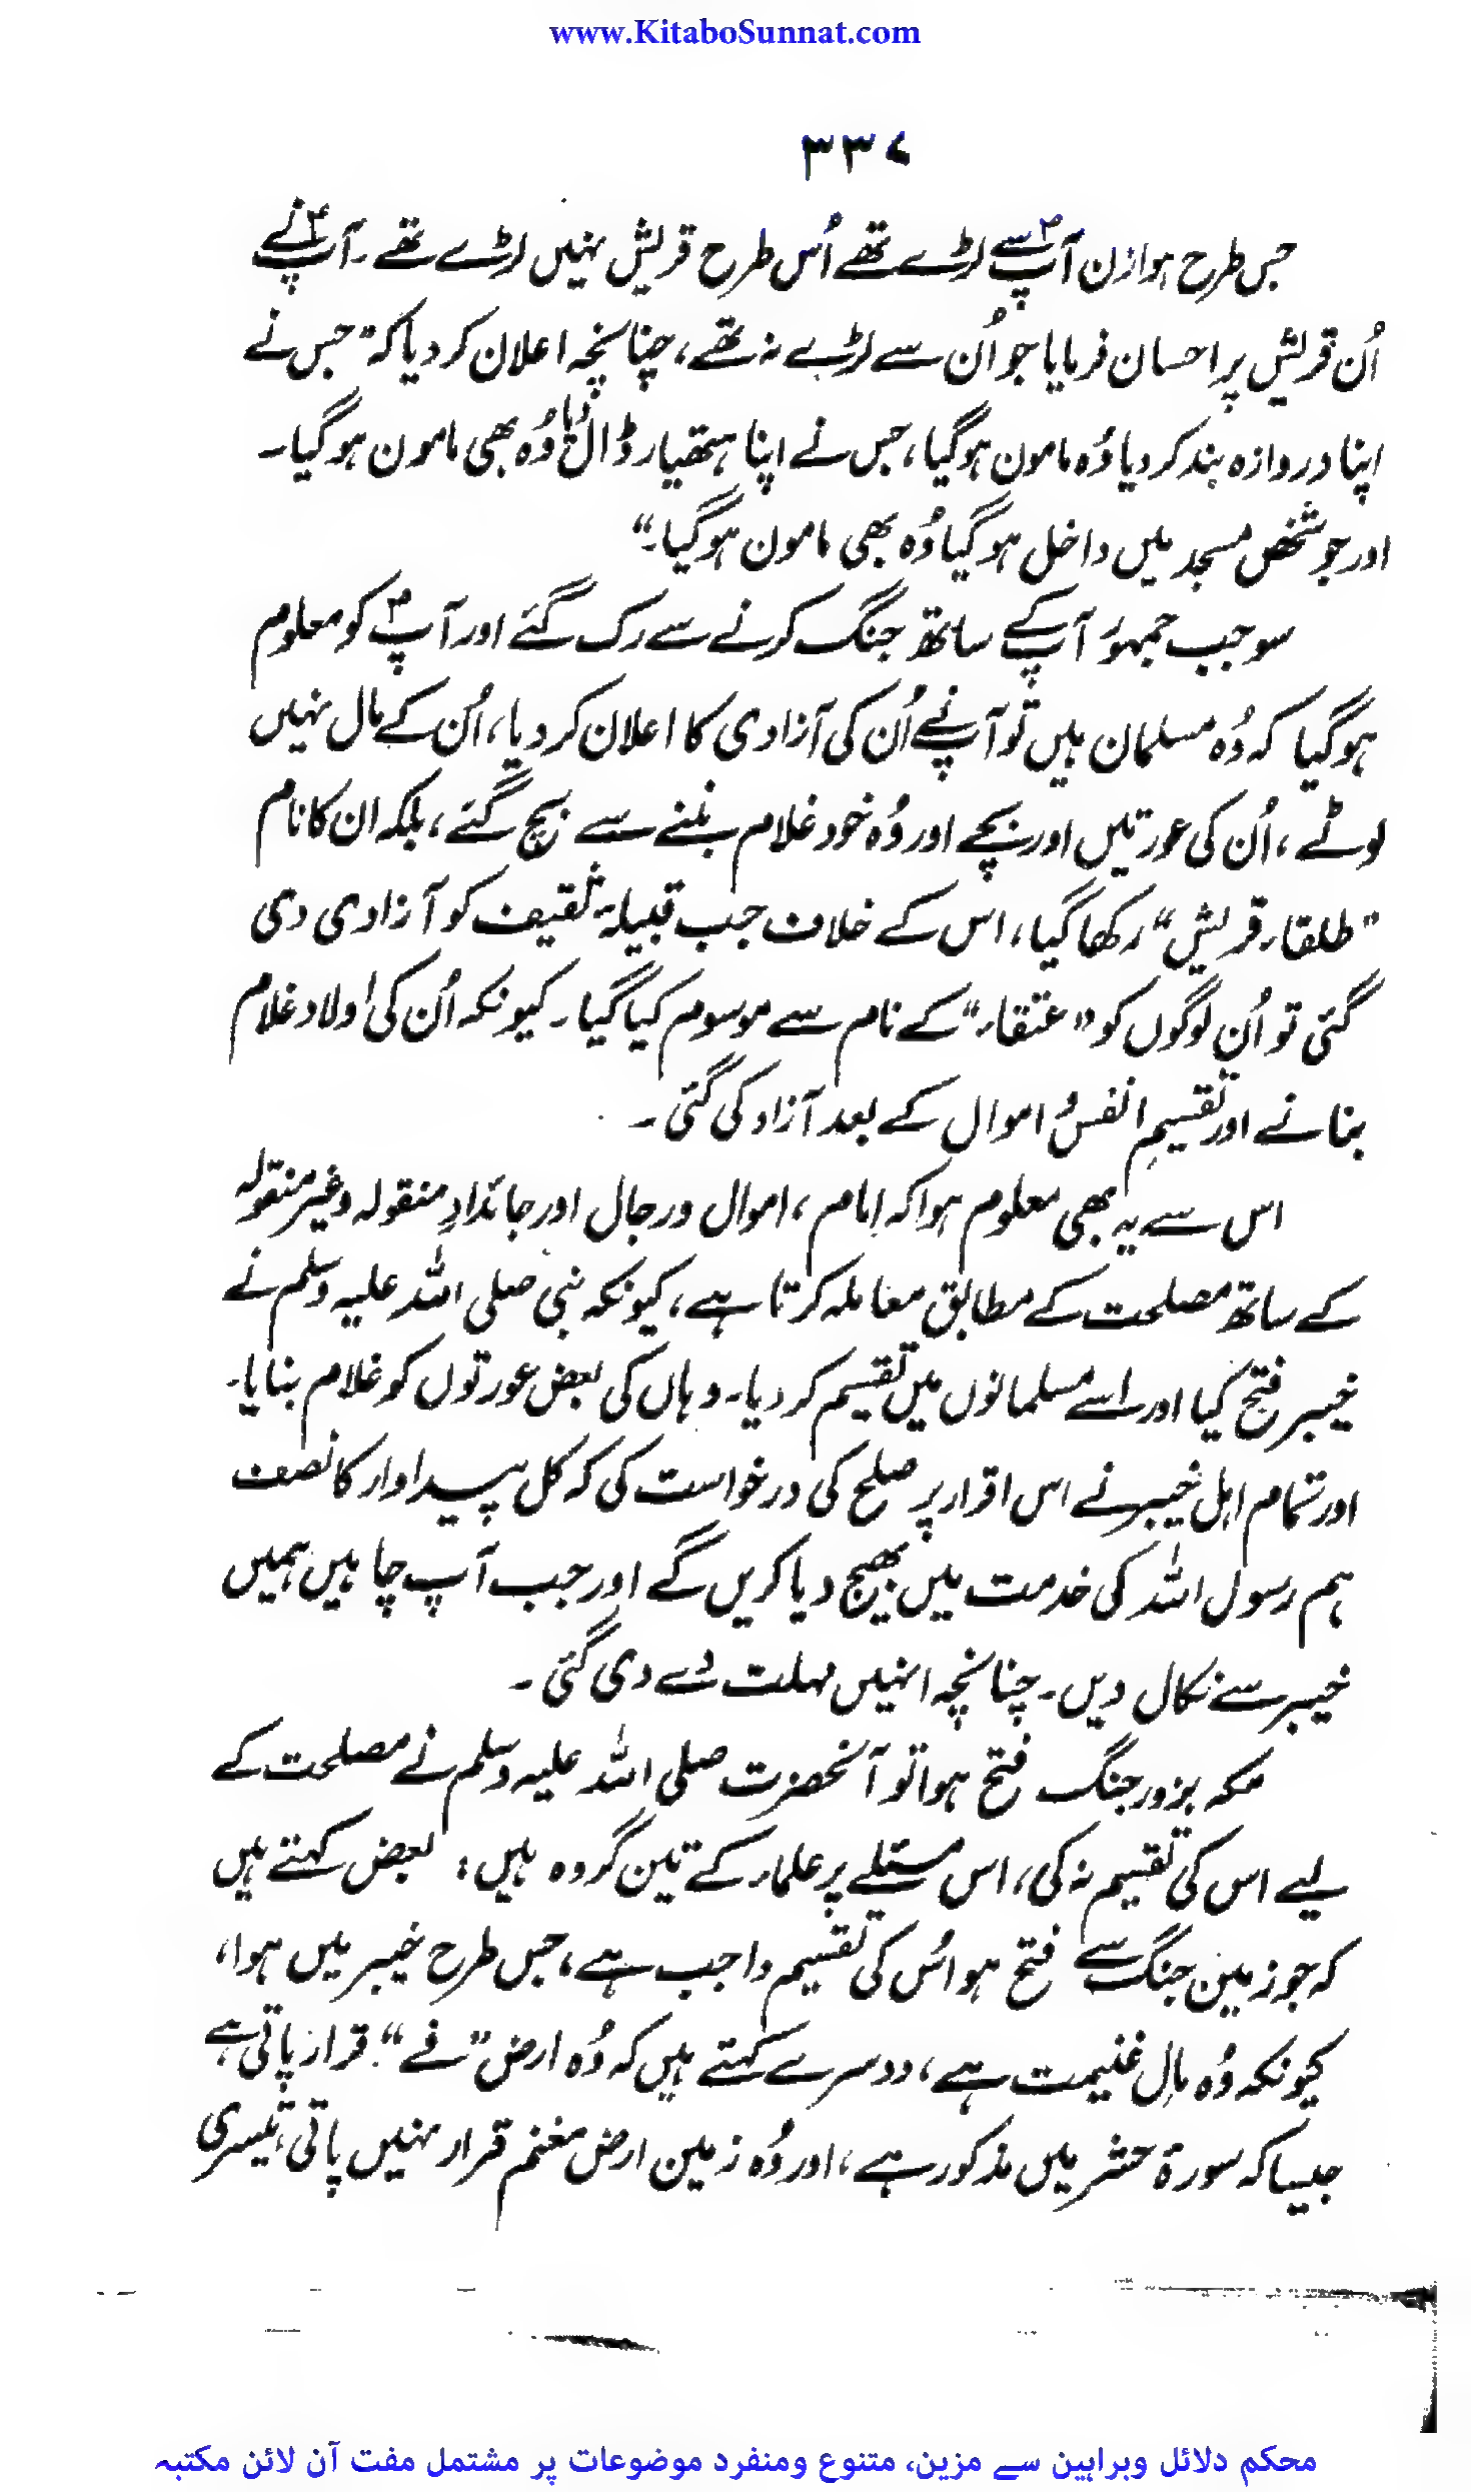 www.KitaboSunnat.com
۳۳۷
جس طرح ہوازن آپؐ سے لڑے تھے اُس طرح قریش نہیں لڑے تھے۔ آپؐ نے
اُن قریش پر احسان فرمایا جو اُن سے لڑے نہ تھے، چنانچہ اعلان کر دیا کہ "جس نے
اپنا دروازہ بند کر دیا وُہ مامون ہوگیا، جس نے اپنا ہتھیار ڈال دیا وُہ بھی مامون ہوگیا۔
اور جو شخص مسجد میں داخل ہوگیا وُہ بھی مامون ہوگیا۔"
سو جب جمہور آپ کے ساتھ جنگ کرنے سے رک گئے اور آپؐ کو معلوم
ہوگیا کہ وُہ مسلمان ہیں تو آپ نے اُن کی آزادی کا اعلان کر دیا، اُن کے مال نہیں
لوٹے، اُن کی عورتیں اور بچے اور وُہ خود غلام بننے سے بچ گئے، بلکہ ان کا نام
"طلقاء قریش" رکھا گیا، اس کے خلاف جب قبیلہ ثقیف کو آزادی دی
گئی تو اُن لوگوں کو "عتقاء" کے نام سے موسوم کیا گیا۔ کیونکہ اُن کی اولاد غلام
بنانے اور تقسیمِ انفس و اموال کے بعد آزاد کی گئی۔
اس سے یہ بھی معلوم ہوا کہ امام، اموال و رجال اور جائدادِ منقولہ و غیر منقولہ
کے ساتھ مصلحت کے مطابق معاملہ کرتا ہے، کیونکہ نبی صلی اللہ علیہ وسلم نے
خیبر فتح کیا اور اسے مسلمانوں میں تقسیم کر دیا۔ وہاں کی بعض عورتوں کو غلام بنایا۔
اور تمام اہل خیبر نے اس اقرار پر صلح کی درخواست کی کہ کل پیداوار کا نصف
ہم رسول اللہ کی خدمت میں بھیج دیا کریں گے اور جب آپ چاہیں ہمیں
خیبر سے نکال دیں۔ چنانچہ انہیں مہلت دے دی گئی۔
مکہ بزور جنگ فتح ہوا تو آنحضرت صلی اللہ علیہ وسلم نے مصلحت کے
لیے اس کی تقسیم نہ کی، اس مسئلے پر علماء کے تین گروہ ہیں: بعض کہتے ہیں
کہ جو زمین جنگ سے فتح ہو اُس کی تقسیم واجب ہے، جس طرح خیبر میں ہوا،
کیونکہ وُہ مالِ غنیمت ہے، دوسرے کہتے ہیں کہ وُہ ارض "فے" قرار پاتی ہے
جیسا کہ سورۃ حشر میں مذکور ہے، اور وُہ زمین ارض مغنم قرار نہیں پاتی، تیسری
محکم دلائل وبراہین سے مزین، متنوع ومنفرد موضوعات پر مشتمل مفت آن لائن مکتبہ